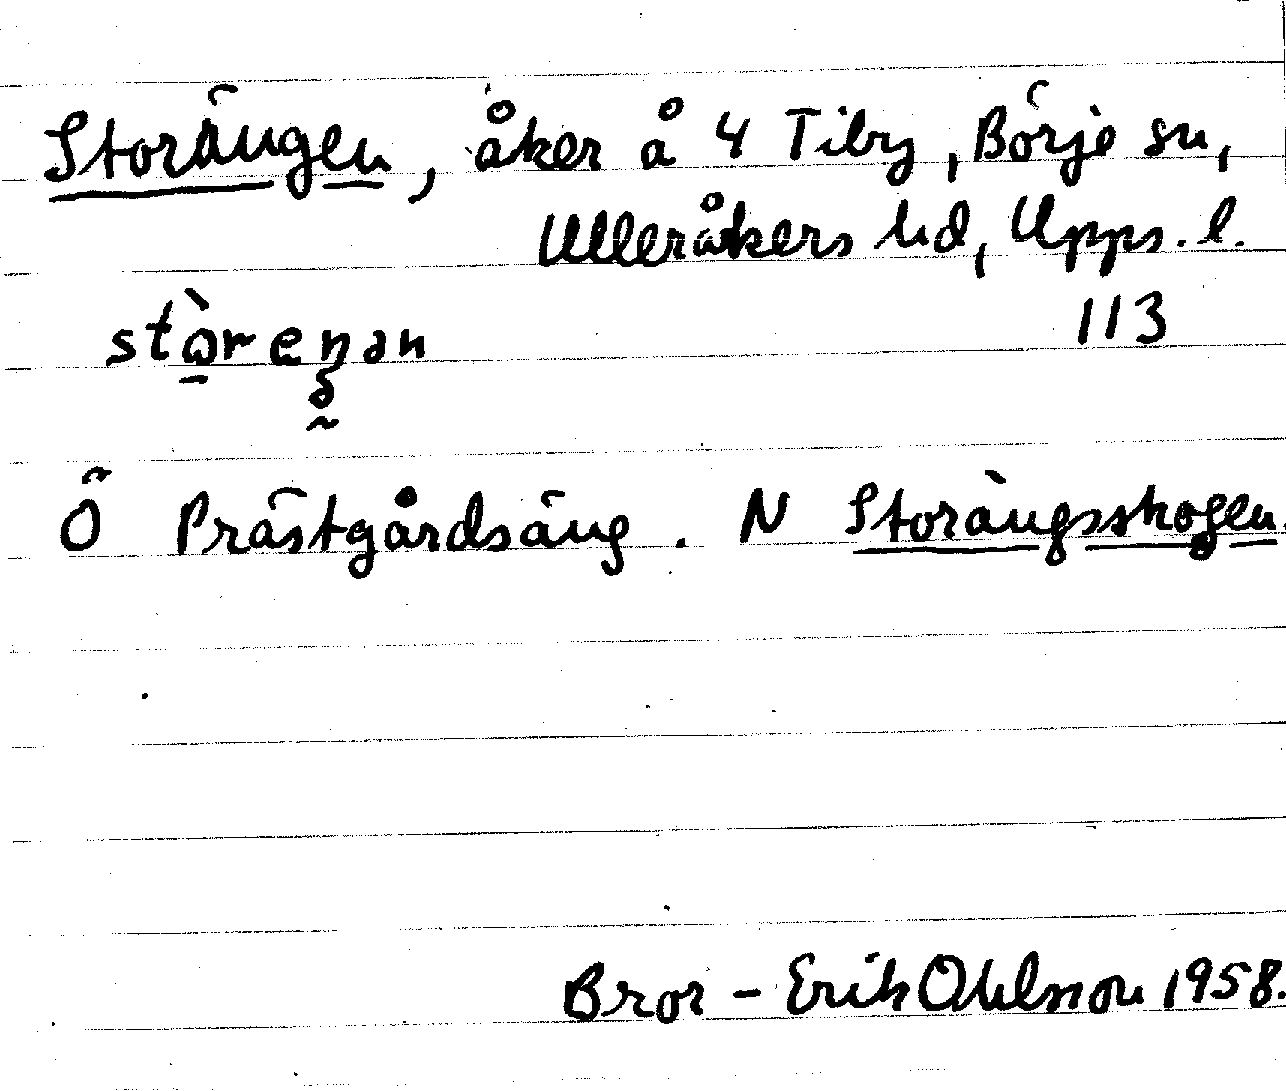 Storängen, åker å 4 Tiby, Börje sn,
Ulleråkers hd, Upps. l.
113
Ö Prästgårdsäng. N Storängsskogen.
Bror-Erik Ohlsson 1958.